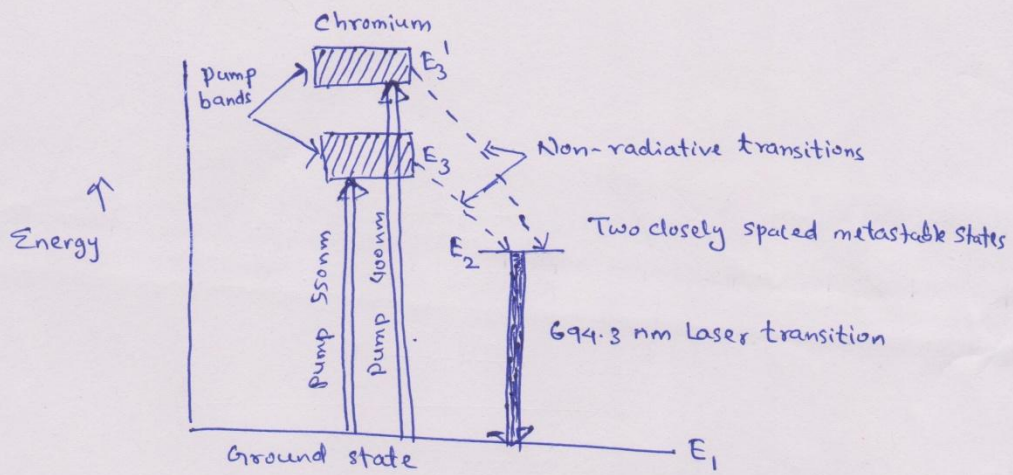 Chromium
Pump
bands
E3'
E3
Non-radiative transitions
Two closely spaced metastable states
Energy
E2
Pump 550nm
Pump 400nm
694.3 nm Laser transition
Ground state
E1